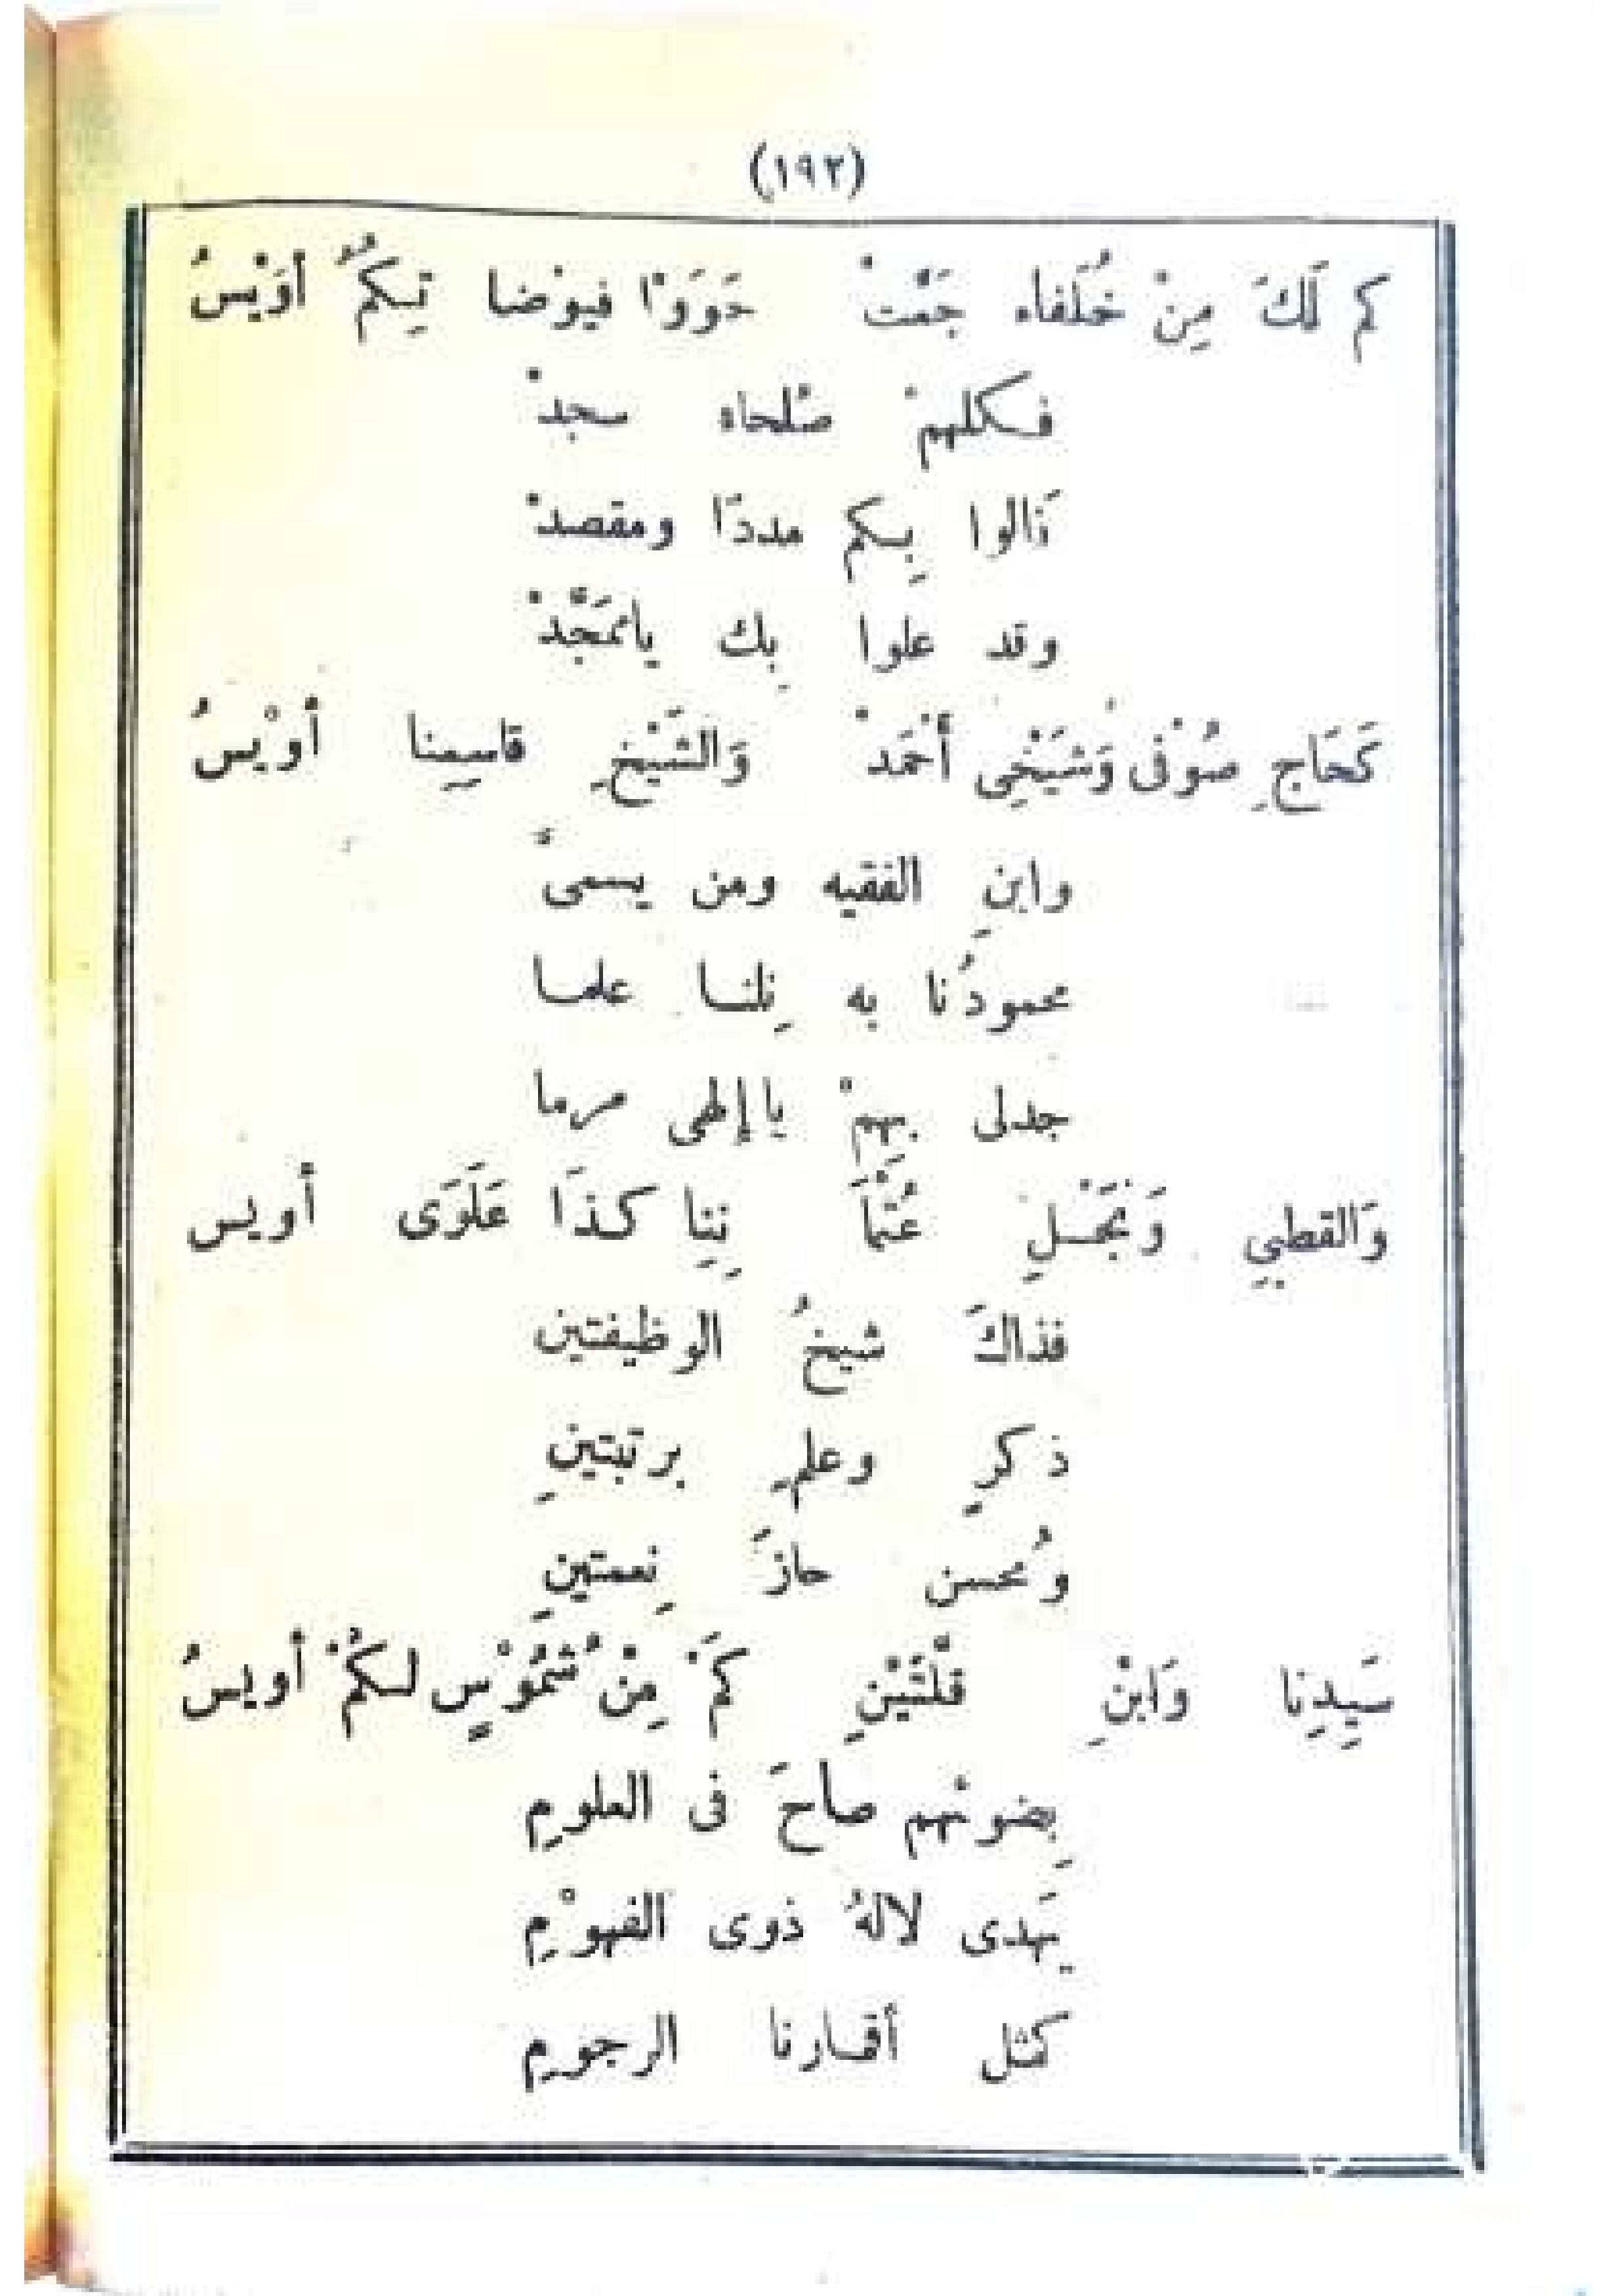 (١٩٢)
كم لَكَ مِنْ خُلَفاء جَمَّتْ حَوَوْا فيوْضا تِكُمُ أوَيْسُ
فكلهمْ صُلحاء سجدْ
نَالوا بِكم مددًا ومقصدْ
وقد علوا بِك يامُمَجَّدْ
كَحَاجِ صُوْفى وَشَيْخِى أَحْمَدْ وَالشَيْخِ قاسِمِنا أُوَيْسُ
وابنِ الفقيه ومن يسمىَّ
محمودُنا به نِلنا علما
جدلى بهمْ ياإلهى مرما
وَالقطبِي وَنَجْلِ عُثْمَاَ نِنِا كذَا عَلَوَى أُويس
فذاكَ شيخُ الوظيفتين
ذكرٍ وعلمِ برتبتينِ
ومُحسن حازَ نِعمتينِ
سَيِدِنا وَابْنِ قُلْتَيْنِ كَمْ مِنْ شُمُوْسٍ لكُمْ أويسُ
بِضوئهم صاحَ فى العلومِ
يَهدى لالهُ ذوى الفهوْمِ
كمثل أقمارنا الرجومِ